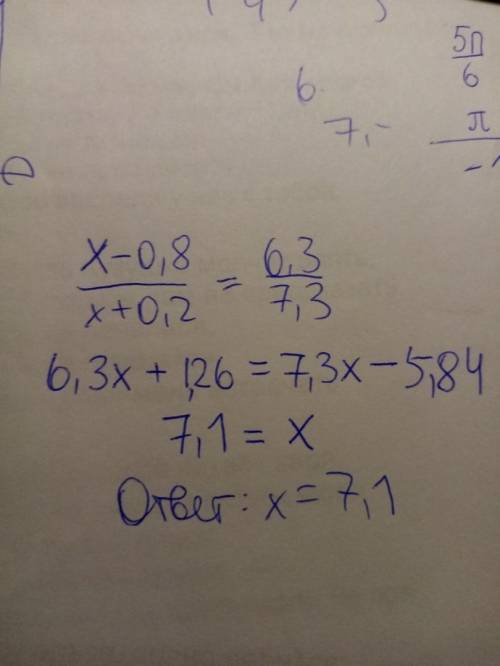 5π/6
6.
7,- π
(x-0,8)/(x+0,2) = 6,3/7,3
6,3x+1,26=7,3x-5,84
7,1=x
Ответ: x=7,1